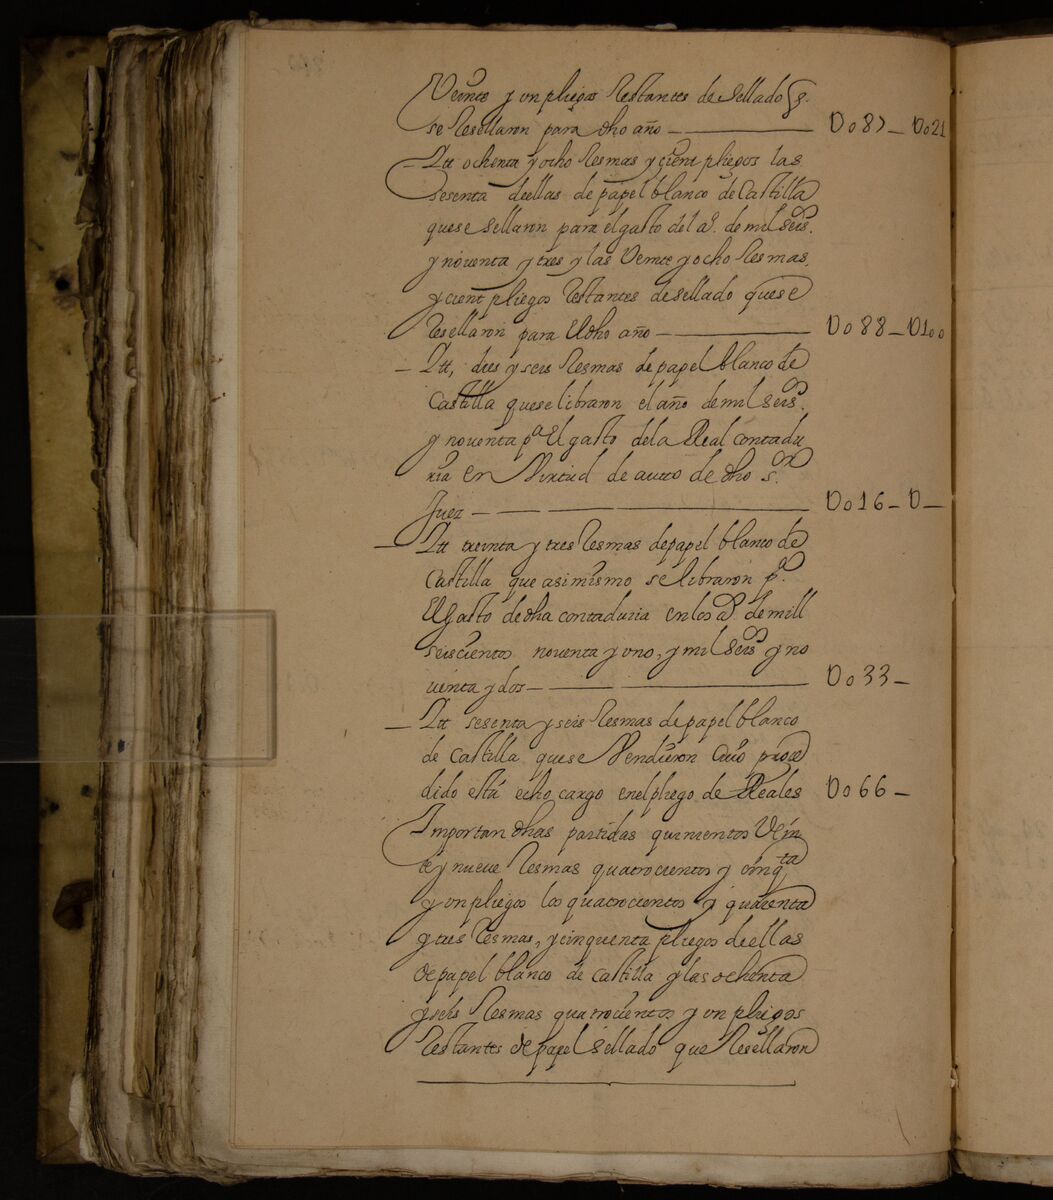 Veinte y un pliegos restantes de sellado q.
se resellaron para dho año — Do87 — Do21
Itt ochenta y ocho resmas y çient pliegos las
sesenta de ellas de papel blanco de Castilla
que se sellaron para el gasto del a.º de mil seis.os
y noventa y tres y las Veinte y ocho resmas
y cient pliegos restantes de sellado que se
resellaron para el dho año — Do88 — D1oo
Itt, dies y seis resmas de papel blanco de
Castilla que se libraron el año de mil seis.os
y noventa p.a El gasto de la Real contadu
ria en Virtud de auto de dho s.or
Juez — Do16 — D —
Itt treinta y tres resmas de papel blanco de
Castilla que asimismo se libraron p.a
El Gasto de dha contaduria en los a.s de mill
seiscientos noventa y uno, y mil seis.os y no
venta y dos — Do33 —
Itt sesenta y seis resmas de papel blanco
de Castilla que se Vendieron cuio proce
dido está echo cargo en el pliego de Reales Do66 —
Importan dhas partidas quinientos Vein
te y nueve resmas quatrocientos y cinq.ta
y un pliegos los quatrocientos y quarenta
y tres resmas, y cinquenta pliegos de ellas
de papel blanco de Castilla y las ochenta
y seis resmas quatrocientos y un pliegos
restantes de papel sellado que resellaron